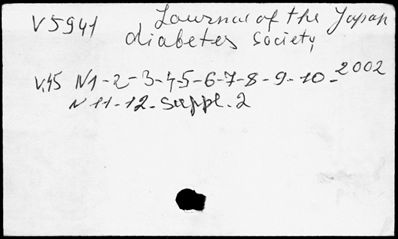 V5941 Journal of the Japan
diabetes society
V.45 N1-2-3-4-5-6-7-8-9-10-2002
N11-12-suppl.2